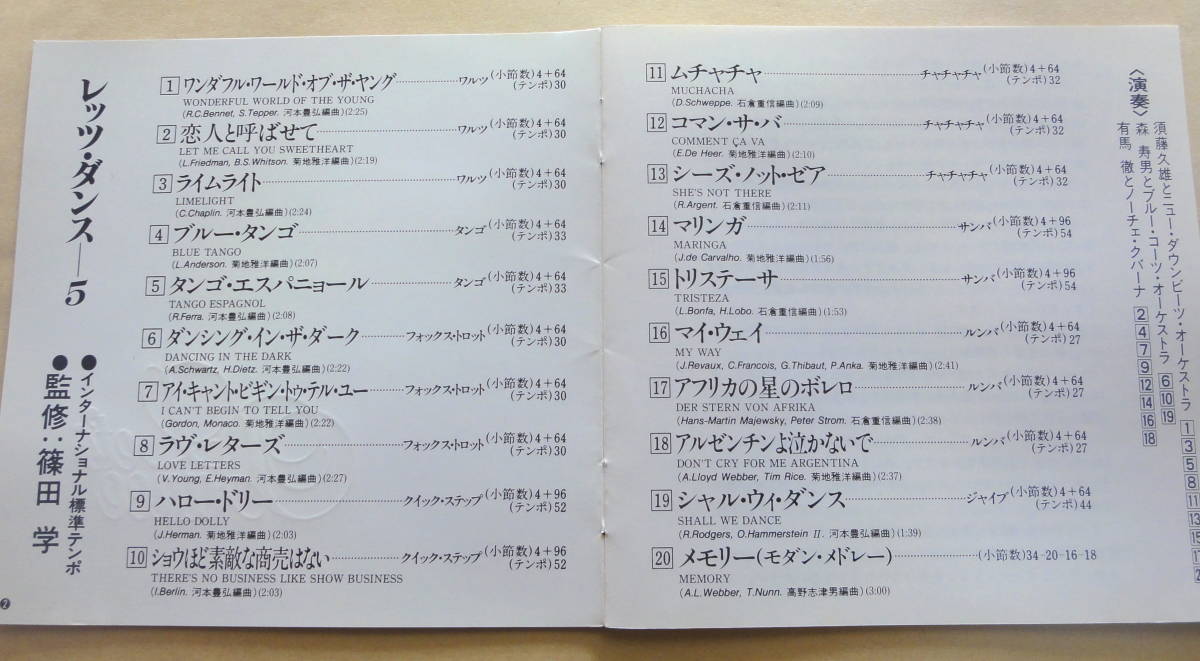 レッツ・ダンス―5
●インターナショナル標準テンポ
●監修：篠田 学
1 ワンダフル・ワールド・オブ・ザ・ヤング ワルツ (小節数)4+64 (テンポ)30
WONDERFUL WORLD OF THE YOUNG
(R.C.Bennet, S.Tepper. 河本豊弘編曲)(2:25)
2 恋人と呼ばせて ワルツ (小節数)4+64 (テンポ)30
LET ME CALL YOU SWEETHEART
(L.Friedman, B.S.Whitson. 菊地雅洋編曲)(2:19)
3 ライムライト ワルツ (小節数)4+64 (テンポ)30
LIMELIGHT
(C.Chaplin. 河本豊弘編曲)(2:24)
4 ブルー・タンゴ タンゴ (小節数)4+64 (テンポ)33
BLUE TANGO
(L.Anderson. 菊地雅洋編曲)(2:07)
5 タンゴ・エスパニョール タンゴ (小節数)4+64 (テンポ)33
TANGO ESPAGNOL
(R.Ferra. 河本豊弘編曲)(2:08)
6 ダンシング・イン・ザ・ダーク フォックス・トロット (小節数)4+64 (テンポ)30
DANCING IN THE DARK
(A.Schwartz, H.Dietz. 河本豊弘編曲)(2:22)
7 アイ・キャント・ビギン・トゥ・テル・ユー フォックス・トロット (小節数)4+64 (テンポ)30
I CAN'T BEGIN TO TELL YOU
(Gordon, Monaco. 菊地雅洋編曲)(2:22)
8 ラヴ・レターズ フォックス・トロット (小節数)4+64 (テンポ)30
LOVE LETTERS
(V.Young, E.Heyman. 河本豊弘編曲)(2:27)
9 ハロー・ドリー クイック・ステップ (小節数)4+96 (テンポ)52
HELLO DOLLY
(J.Herman. 菊地雅洋編曲)(2:03)
10 ショウほど素敵な商売はない クイック・ステップ (小節数)4+96 (テンポ)52
THERE'S NO BUSINESS LIKE SHOW BUSINESS
(I.Berlin. 河本豊弘編曲)(2:03)
2
11 ムチャチャ チャチャチャ (小節数)4+64 (テンポ)32
MUCHACHA
(D.Schweppe. 石倉重信編曲)(2:09)
12 コマン・サ・バ チャチャチャ (小節数)4+64 (テンポ)32
COMMENT ÇA VA
(E.De Heer. 菊地雅洋編曲)(2:10)
13 シーズ・ノット・ゼア チャチャチャ (小節数)4+64 (テンポ)32
SHE'S NOT THERE
(R.Argent. 石倉重信編曲)(2:11)
14 マリンガ サンバ (小節数)4+96 (テンポ)54
MARINGA
(J.de Carvalho. 菊地雅洋編曲)(1:56)
15 トリステーサ サンバ (小節数)4+96 (テンポ)54
TRISTEZA
(L.Bonfa, H.Lobo. 石倉重信編曲)(1:53)
16 マイ・ウェイ ルンバ (小節数)4+64 (テンポ)27
MY WAY
(J.Revaux, C.Francois, G.Thibaut, P.Anka. 菊地雅洋編曲)(2:41)
17 アフリカの星のボレロ ルンバ (小節数)4+64 (テンポ)27
DER STERN VON AFRIKA
(Hans-Martin Majewsky, Peter Strom. 石倉重信編曲)(2:38)
18 アルゼンチンよ泣かないで ルンバ (小節数)4+64 (テンポ)27
DON'T CRY FOR ME ARGENTINA
(A.Lloyd Webber, Tim Rice. 菊地雅洋編曲)(2:37)
19 シャル・ウィ・ダンス ジャイブ (小節数)4+64 (テンポ)44
SHALL WE DANCE
(R.Rodgers, O.Hammerstein II. 河本豊弘編曲)(1:39)
20 メモリー(モダン・メドレー) (小節数)34-20-16-18
MEMORY
(A.L.Webber, T.Nunn. 高野志津男編曲)(3:00)
〈演奏〉
須藤久雄とニュー・ダウンビーツ・オーケストラ 1 3 5 8 11 13 15
森 寿男とブルー・コーツ・オーケストラ 6 10 19
有馬 徹とノーチェ・クバーナ 2 4 7 9 12 14 16 18